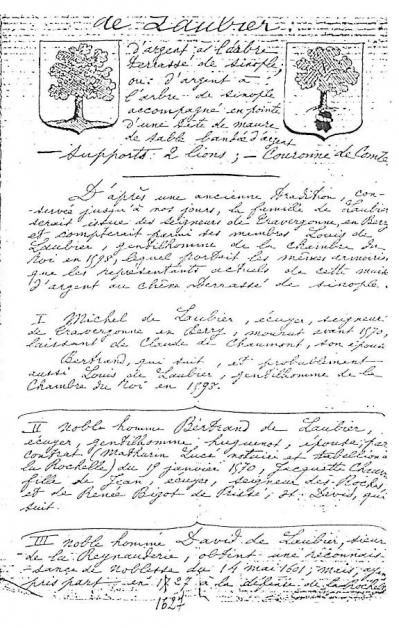 de Laubier.
d'argent à l'arbre
terrassé de sinople,
ou: d'argent à
l'arbre de sinople
accompagné en pointe
d'une tête de maure
de sable d'argent
— Supports: 2 lions; — Couronne de Comte
D'après une ancienne tradition, con-
servée jusqu'à nos jours, la famille de Laubier
serait issue des seigneurs de Travergonne, en Berry
et compterait parmi ses membres Louis de
Laubier, gentilhomme de la chambre du
Roi en 1598, lequel portait les mêmes armoiries
que les représentants actuels de cette mais
d'argent au chêne terrassé de sinople.
I Michel de Laubier, écuyer, seigneur
de Travergonne en Berry, mourut avant 1570,
laissant de Claude de Chaumont, son épouse
Bertrand, qui suit, et probablement
aussi Louis de Laubier, gentilhomme de la
Chambre du Roi en 1598.
II Noble homme Bertrand de Laubier,
écuyer, gentilhomme, huguenot, épouse, par
contrat (Mathurin Lucé notaire et tabellion à
la Rochelle) du 19 janvier 1570, Jacquette
fille de Jean, écuyer, seigneur des Roches
et de Renée Bigot de dt: qui
suit.
III Noble homme David de Laubier, sieur
de la Reynauderie, obtint une reconnais-
sance de noblesse du 14 mai 1601; mais, ay
pris part en 1727 à la défense de la Rochelle
1627